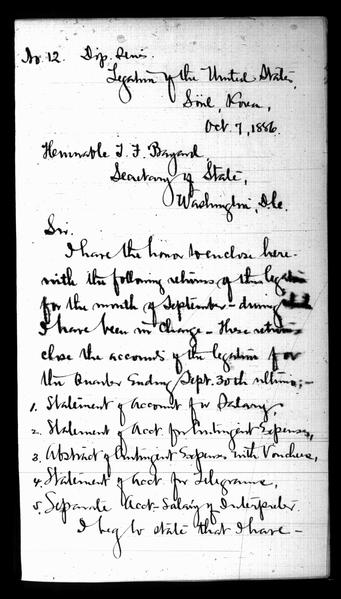 No. 12. Dip. Series
Legation of the United States,
Söul, Korea,
Oct 7, 1886.
Honorable T. F. Bayard,
Secretary of State,
Washington, D.C.
Sir.
I have the honor to enclose here-
with the following returns of this legation
for the month of September - during which
I have been in charge - These returns
close the accounts of the legation for
the Quarter Ending Sept. 30th ultimo; -
1. Statement of Account for Salary,
2. Statement of Acct. for Contingent Expenses,
3. Abstract of Contingent Expenses with Vouchers,
4. Statement of Acct. for Telegrams,
5. Separate Acct. Salary of Interpreter.
I beg to state that I have -